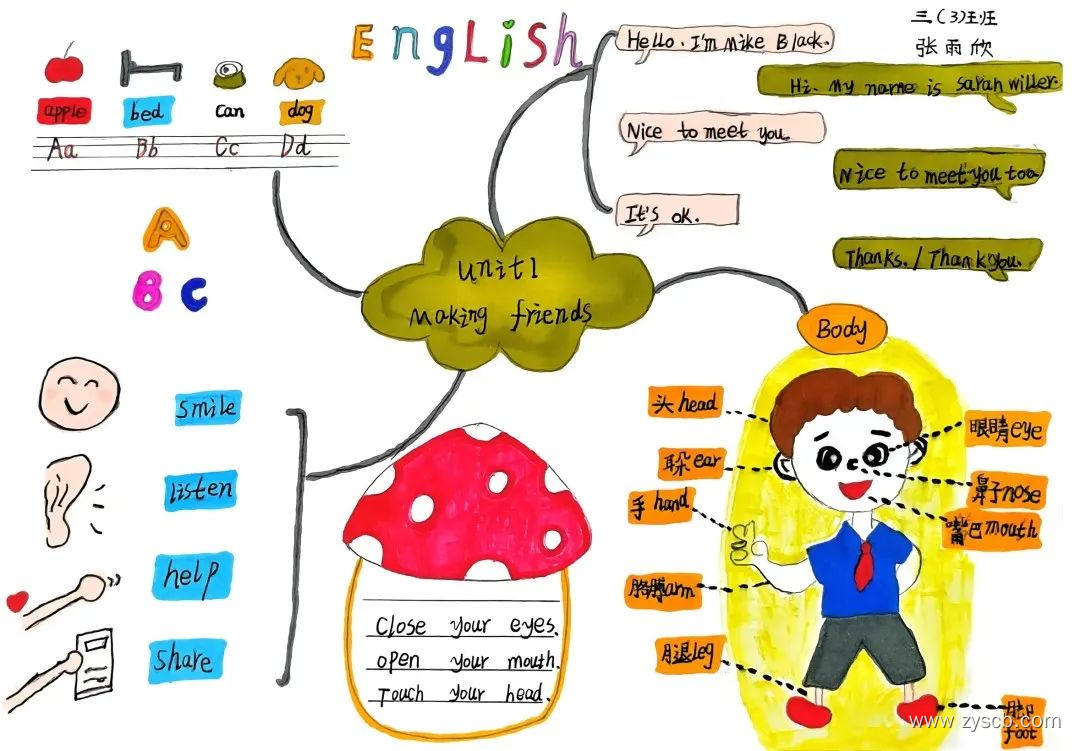 English
三(3)班
张雨欣
apple bed can dog
Aa Bb Cc Dd
A
B C
Unit1
Making friends
Hello. I'm Mike Black.
Hi. My name is Sarah Willer.
Nice to meet you.
Nice to meet you too.
It's ok.
Thanks. / Thank you.
smile
listen
help
share
Close your eyes.
open your mouth.
Touch your head.
Body
头 head
眼睛 eye
朵 ear
鼻子 nose
手 hand
嘴巴 mouth
胳膊 arm
腿 leg
脚
foot
www.zysco.com